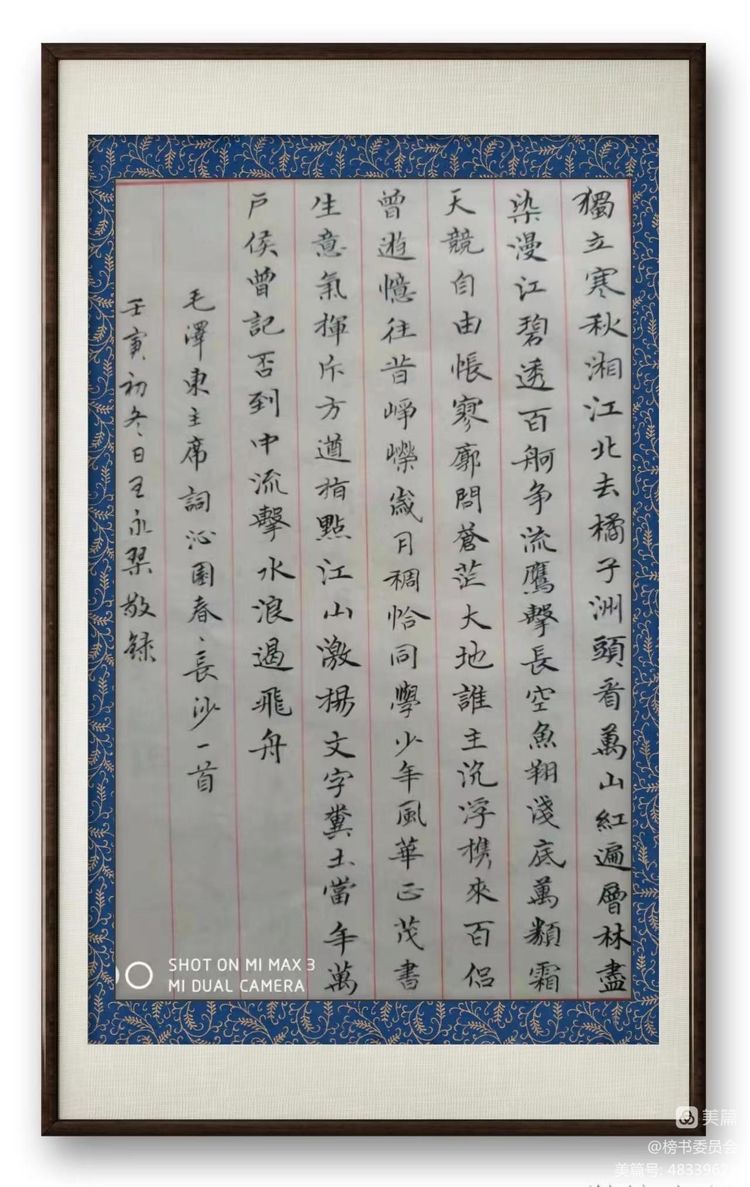 獨立寒秋湘江北去橘子洲頭看萬山紅遍層林盡
染漫江碧透百舸争流鷹擊長空魚翔淺底萬類霜
天競自由悵寥廓問蒼茫大地誰主沉浮携來百侣
曾遊憶往昔崢嶸歲月稠恰同學少年風華正茂書
生意氣揮斥方遒指點江山激揚文字糞土當年萬
戶侯曾記否到中流擊水浪遏飛舟
毛澤東主席詞沁園春、長沙一首
壬寅初冬日王永琹敬録
SHOT ON MI MAX 3
MI DUAL CAMERA
美篇
@榜书委员会